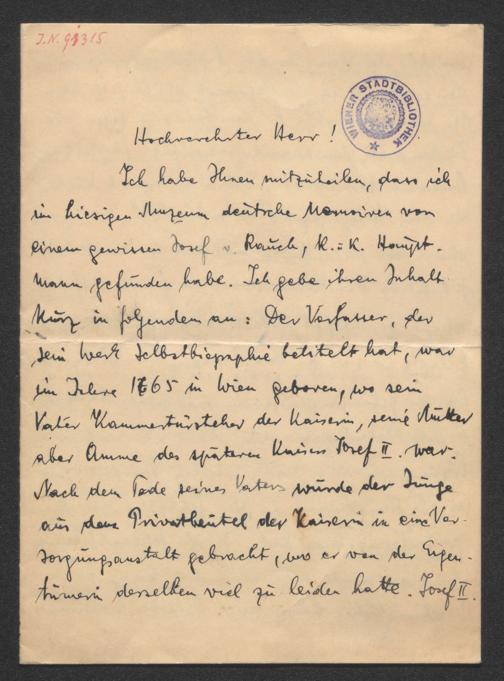 J.N. 91315
WIENER STADTBIBLIOTHEK
Hochverehrter Herr!
Ich habe Ihnen mitzutheilen, dass ich
im hiesigen Museum deutsche Memoiren von
einem gewissen Josef v. Rauch, k.=k. Haupt-
mann gefunden habe. Ich gebe ihren Inhalt
kurz in folgendem an: Der Verfasser, der
sein Werk Selbstbiographie betitelt hat, war
im Jahre 1765 in Wien geboren, wo sein
Vater Kammertürsteher der Kaiserin, seine Mutter
aber Amme des späteren Kaisers Josef II. war.
Nach dem Tode seines Vaters wurde der Junge
aus dem Privatbeutel der Kaiserin in eine Ver-
sorgungsanstalt gebracht, wo er von der Eigen-
tümerin derselben viel zu leiden hatte. Josef II.